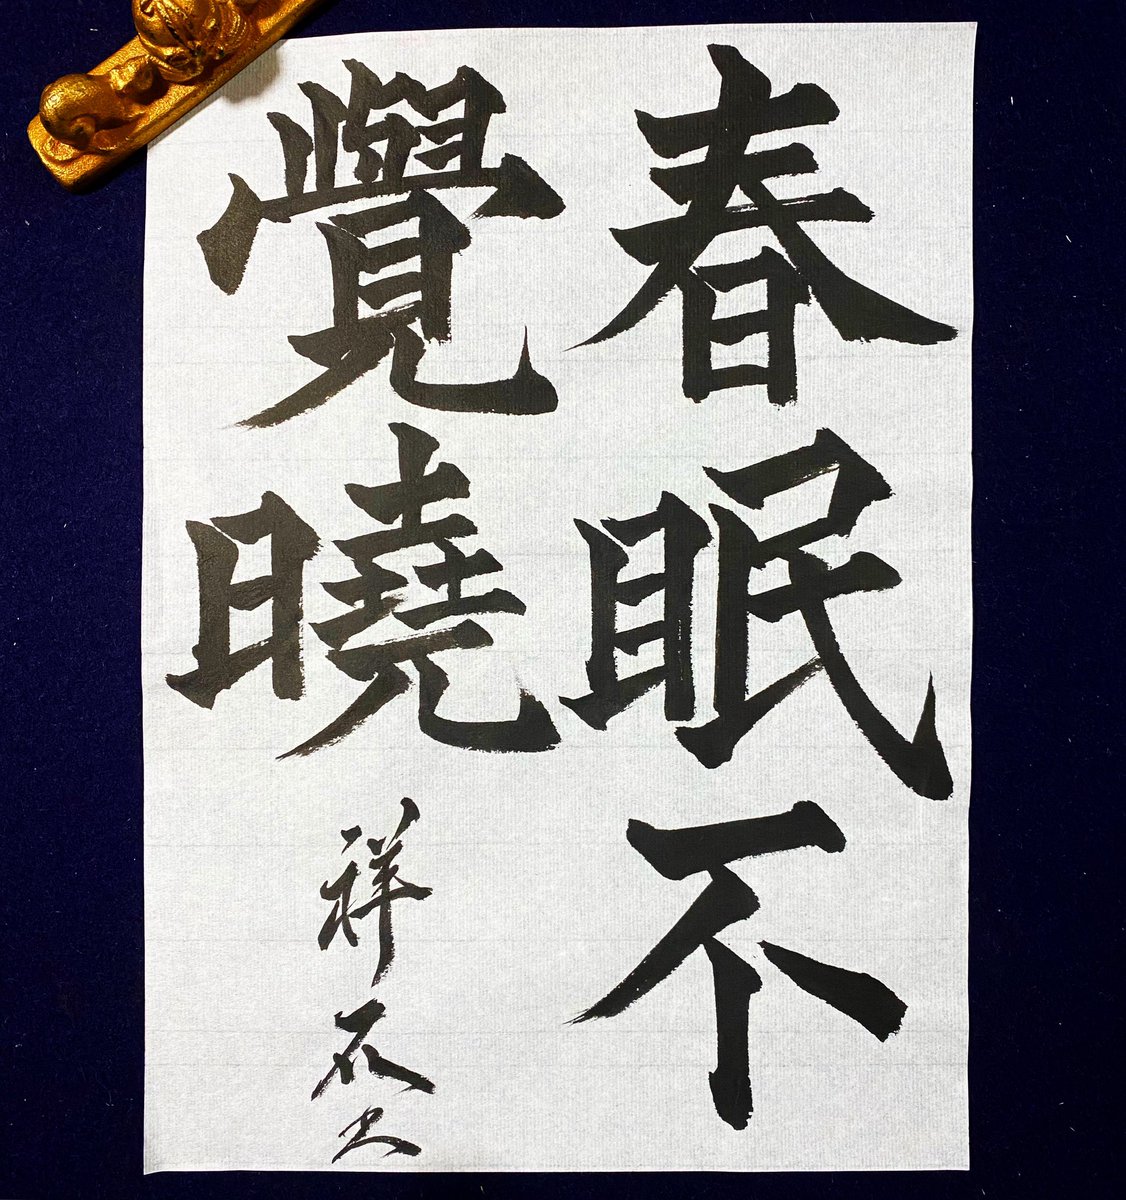 春眠不
覺曉
祥石書